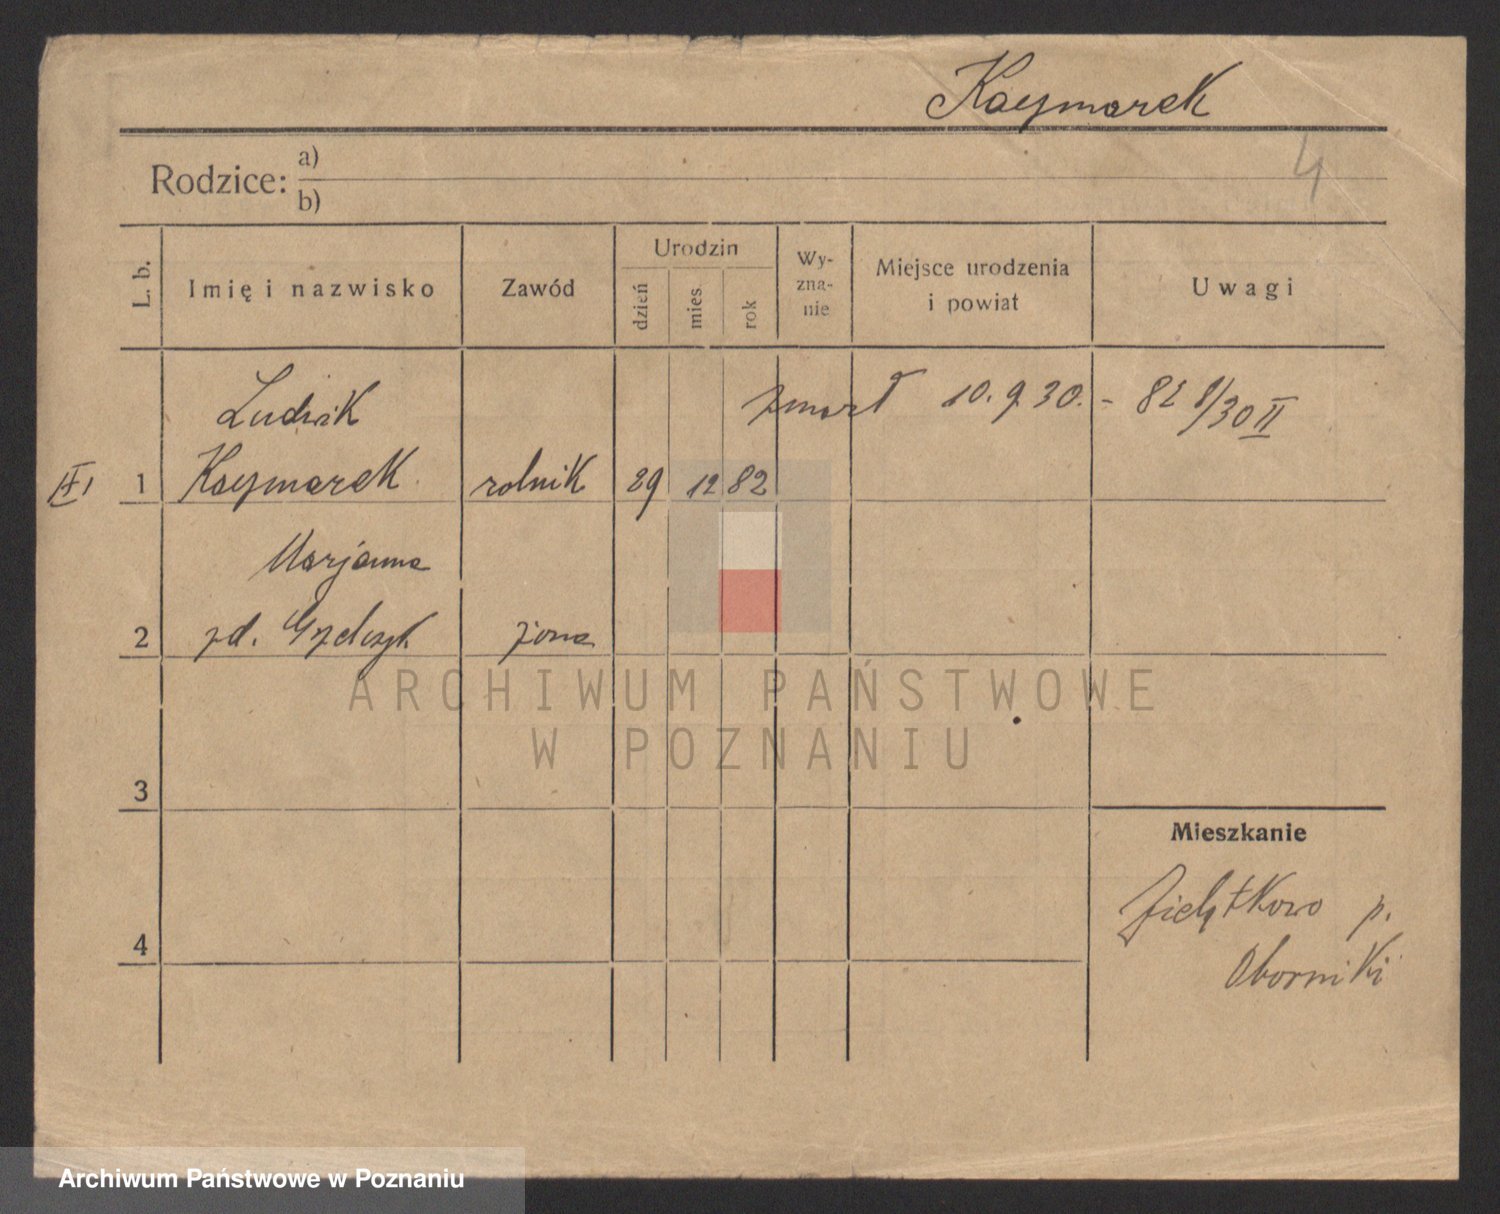 Kaczmarek
4
Rodzice: a)
b)
L. b.
Imię i nazwisko
Zawód
Urodzin
dzień
mies.
rok
Wy-
zna-
nie
Miejsce urodzenia
i powiat
Uwagi
Ludwik
zmarł 10.9.30. -
1 Kaczmarek rolnik 29 12 82
Marjanna
2 zd. Grzelczyk żona
ARCHIWUM PAŃSTWOWE
W POZNANIU
3
Mieszkanie
Zielątkowo p.
Oborniki
4
Archiwum Państwowe w Poznaniu